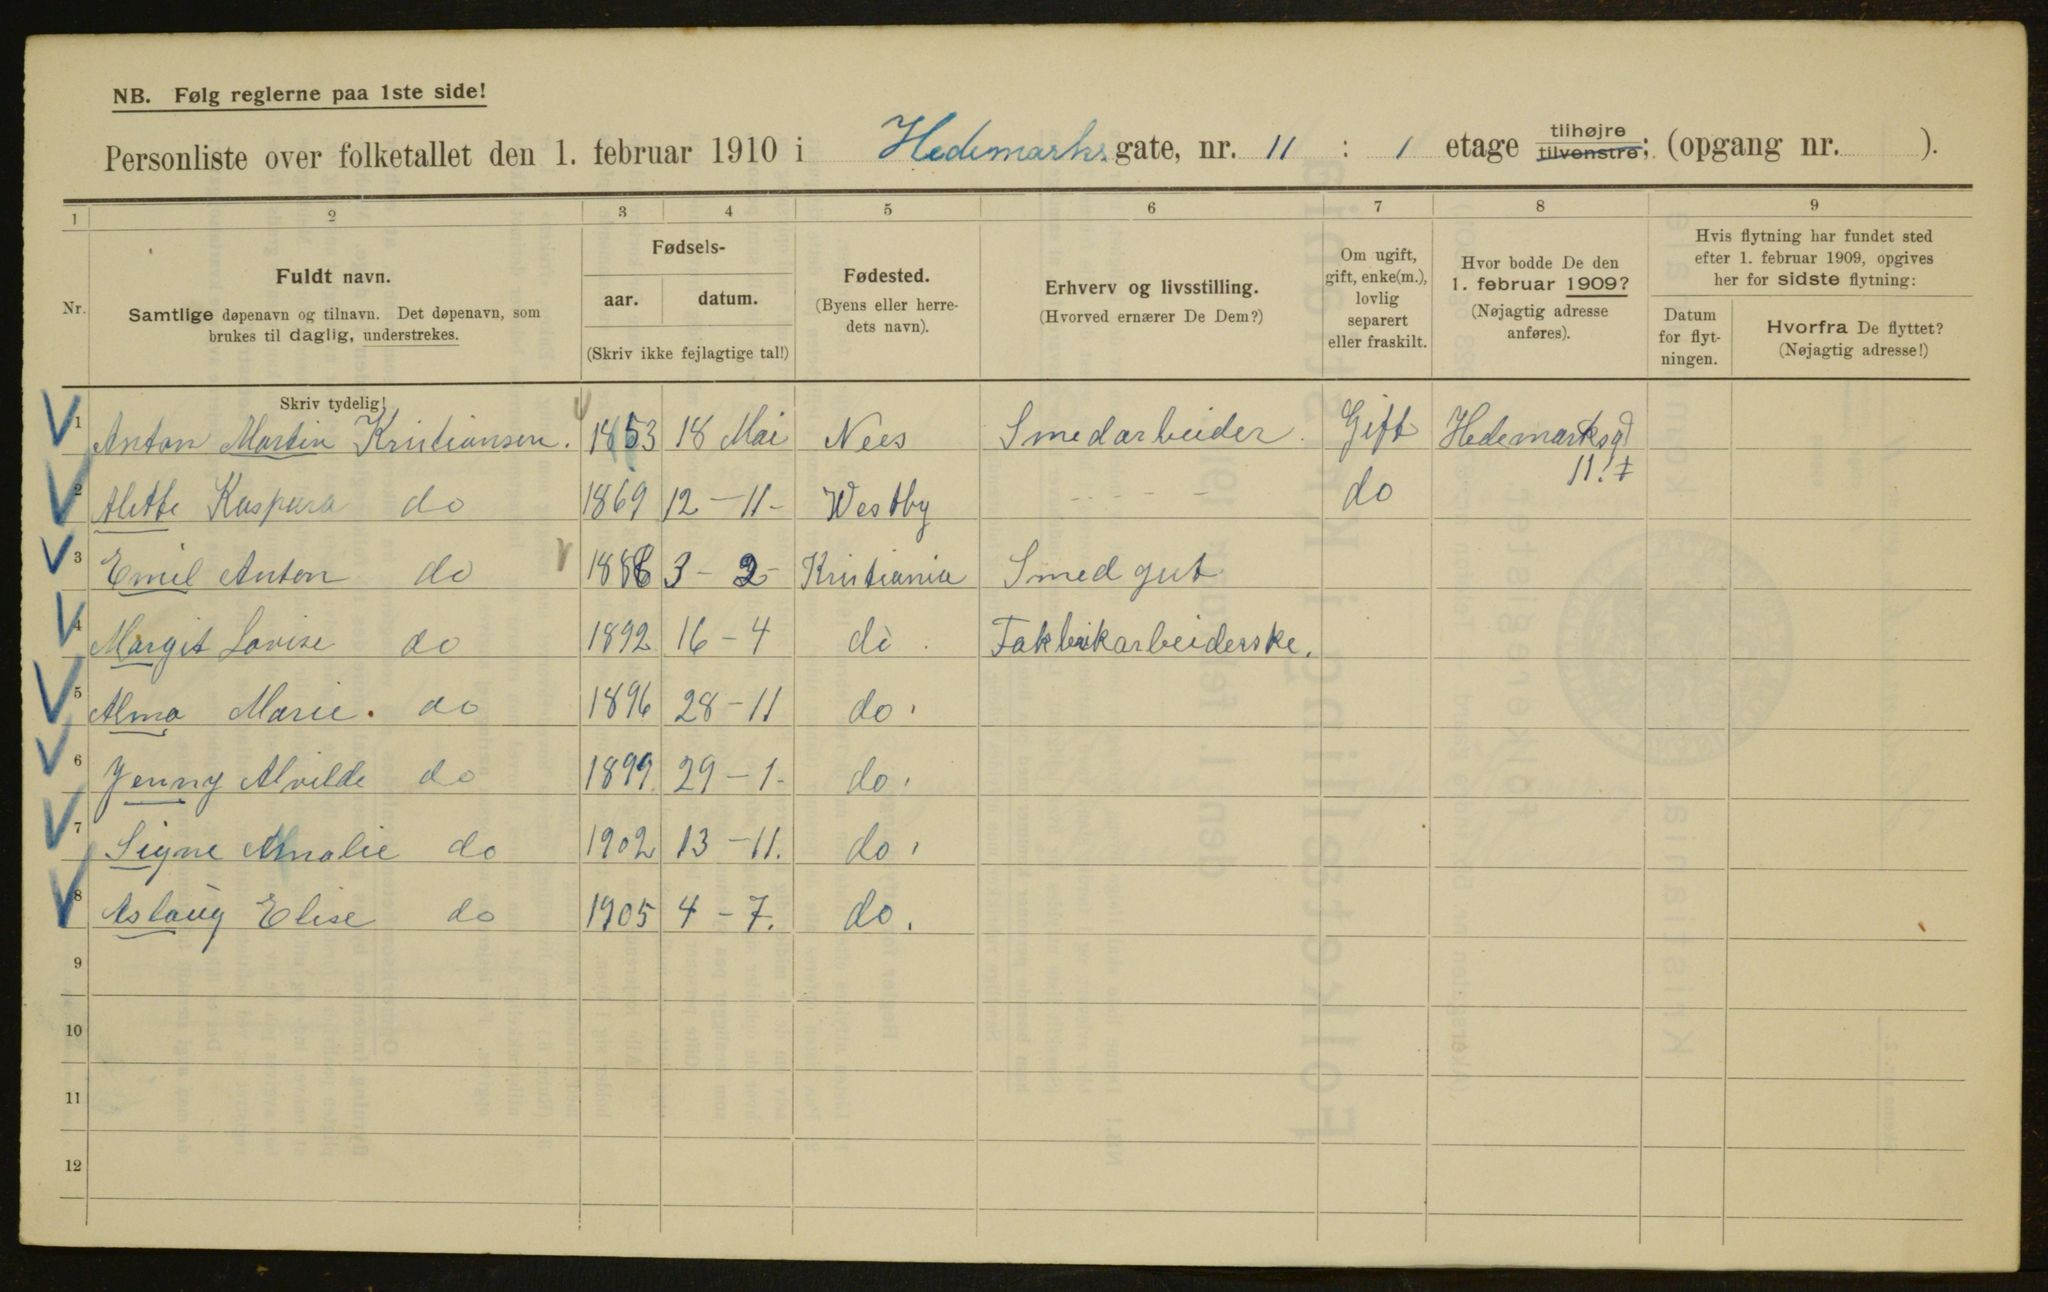 NB. Følg reglerne paa 1ste side!
Personliste over folketallet den 1. februar 1910 i Hedemarks gate, nr. 11 : 1 etage tilhøjre tilvenstre; (opgang nr. ).
1 2 3 4 5 6 7 8 9
Nr.
Fuldt navn.
Samtlige døpenavn og tilnavn. Det døpenavn, som
brukes til daglig, understrekes.
Fødsels-
aar. datum.
(Skriv ikke fejlagtige tal!)
Fødested.
(Byens eller herre-
dets navn).
Erhverv og livsstilling.
(Hvorved ernærer De Dem?)
Om ugift,
gift, enke(m.),
lovlig
separert
eller fraskilt.
Hvor bodde De den
1. februar 1909?
(Nøjagtig adresse
anføres).
Hvis flytning har fundet sted
efter 1. februar 1909, opgives
her for sidste flytning:
Datum
for flyt-
ningen.
Hvorfra De flyttet?
(Nøjagtig adresse!)
Skriv tydelig!
1 Anton Martin Kristiansen. 1853 18 Mai Nees Smedarbeider. Gift Hedemarksgd
11.I
2 Alette Kaspara do 1869 12-11- Westby - - - - do
3 Emil Anton do 1888 3-2- Kristiania Smedgut
4 Margit Lovise do 1892 16-4 do. Fakbrikarbeiderske.
5 Alma Marie. do 1896 28-11 do.
6 Jenny Alvilde do 1899. 29-1- do.
7 Signe Amalie do 1902 13-11. do.
8 Aslaug Elise do 1905 4-7. do.
9
10
11
12